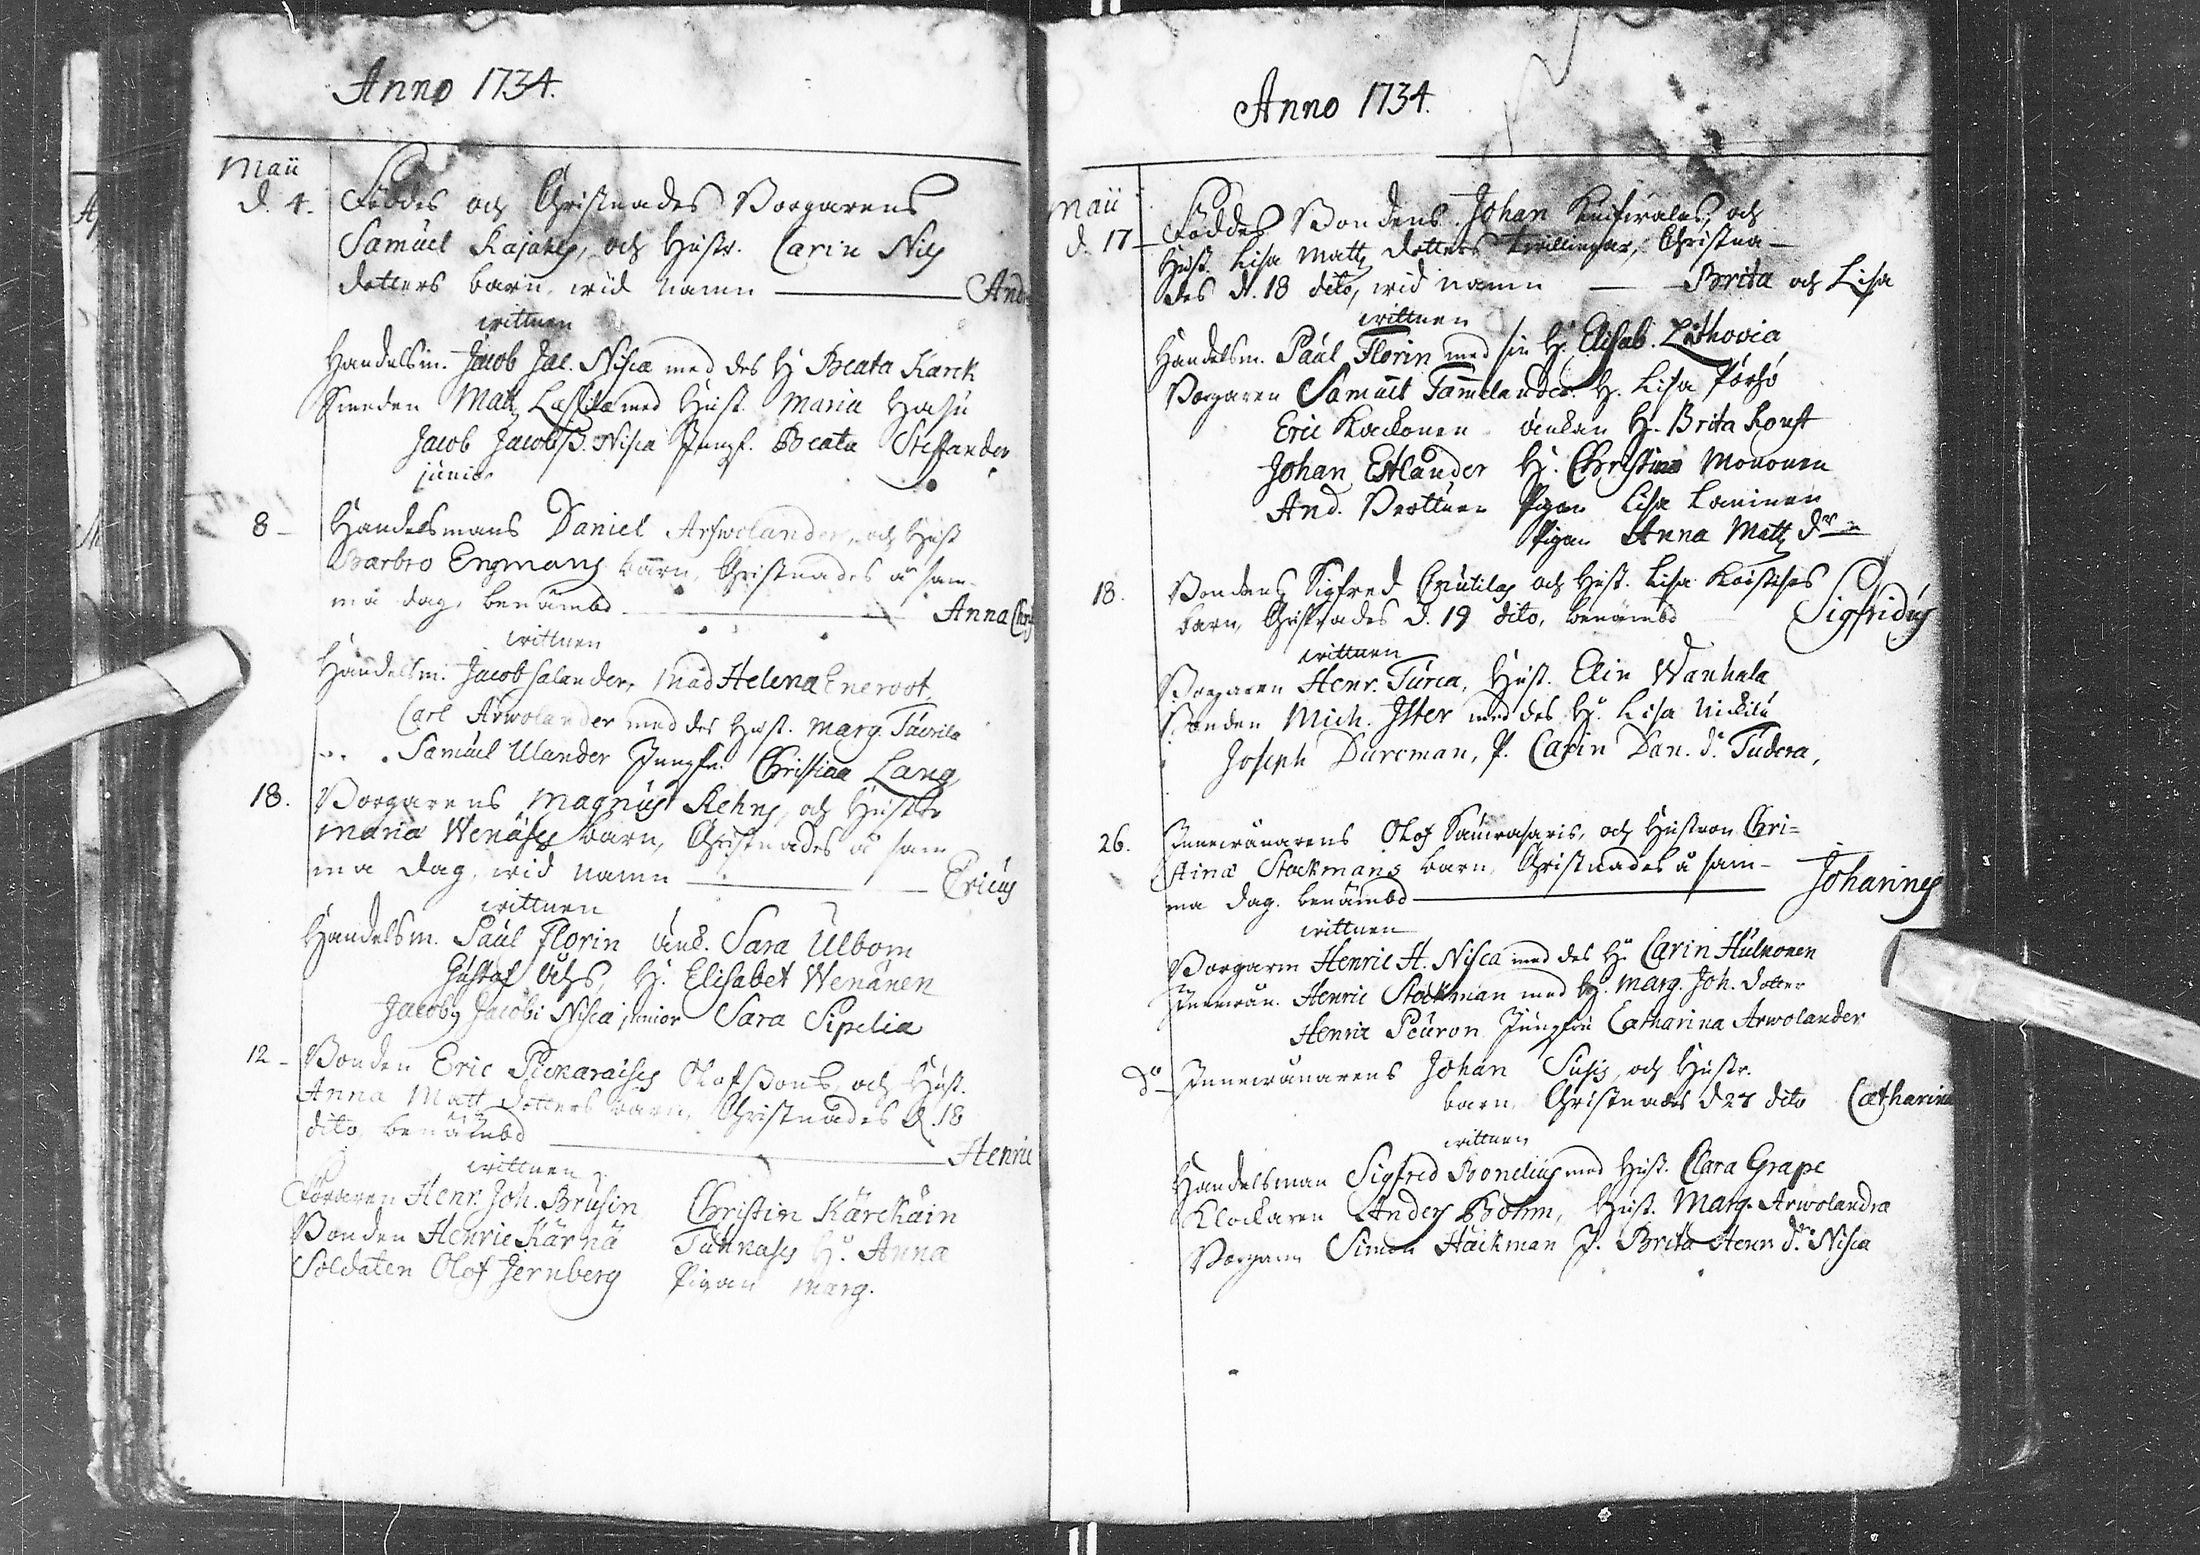 Anno 1734.
Maii
d. 4. Föddes och Christnades Borgarens
Samuel Kajanes, och Hustr. Carin Nils
dotters barn, wid namn — And
wittnen
Handelsm. Jacob Jac. Nisca med des H. Beata Karck
Smeden Matz Lassila med Hust. Maria Hasu
Jacob Jacobss. Nisca Jungf. Beata Steffander
junior
8 — Handelsmans Daniel Arfwolanders, och Hust
Barbro Engmans barn, Christnades å sam-
ma dag, benämbd — Anna Chri
wittnen
Handelsm. Jacob Salander, Mad Helena Eneroot
Carl Arwolander med des Hust. Marg. Tavrila
Samuel Ulander Jungfr. Christina Lang
18. Borgarens Magnus Kehns, och Hustr
Maria Wenäses barn, Christnades å sam
ma dag, wid namn — Ericus
wittnen
Handelsm. Paul Florin änk. Sara Ulbom
Gustaf Uhs, H. Elisabet Wenänen
Jacobus Jacobi Nisca junior Sara Sipelia
12 — Bonden Eric Pickaraises Olofsons, och Hust.
Anna Matt dotters barn, Christnades d. 18
dito, benämbd — Henric
wittnen
Henr. Joh. Brusin Christin Kärckäin
Bonden Henric Kärnä Tuhkases H. Anna
Soldaten Olof Jernberg Pigan Marg.
Anno 1734.
Maii
d. 17 — Föddes Bondens Johan och
Hust. Lisa Matz dotters twillingar, Christna-
des d. 18 dito, wid namn — Brita och Lisa
wittnen
Handelsm. Paul Florin med sin H. Elisab. Lithovia
Borgaren Samuel Tammelander. H. Lisa Pörhö
Eric Kockonen änkan H. Brita Konst
Johan Estlander H. Christina Mononen
And. Prottuen Pigan Lisa Laminen
Pigan Anna Matz dr
18. Bondens Sigfred Cnutilas och Hust. Lisa
barn, Christnades d. 19 dito, benämbd Sigfridus
wittnen
Borgaren Henr. Turca, Hust. Elin Wanhala
Bonden Mich. Itter med des H. Lisa Nickilä
Joseph Durcman, P. Carin Dan. dr Tudera,
26. Inwånarens Olof Sauwasaris, och Hustron Chri=
stinæ Stockmans barn, Christnades å sam-
ma dag. benämbd — Johannes
wittnen
Borgaren Henric H. Nisca med des H. Carin Hulkonen
Inwån. Henric Stockman med H. Marg. Joh. dotter
Henric Peuron Jungfru Catharina Arwolander
do — Innewånarens Johan Susis, och Hustr.
barn, Christnades d 27 dito Catharina
wittnen
Handelsman Sigfred Bonelius med Hust. Clara Grape
Klockaren Anders Bohm, Hust. Marg. Arwolandra
Borgaren Simon Häckman P. Brita Henr dr Nisca